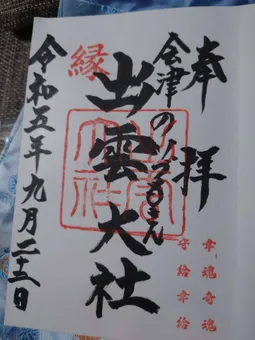 奉拝
会津のいづもさん
縁
出雲大社
幸魂奇魂
守給幸給
令和五年九月二十二日